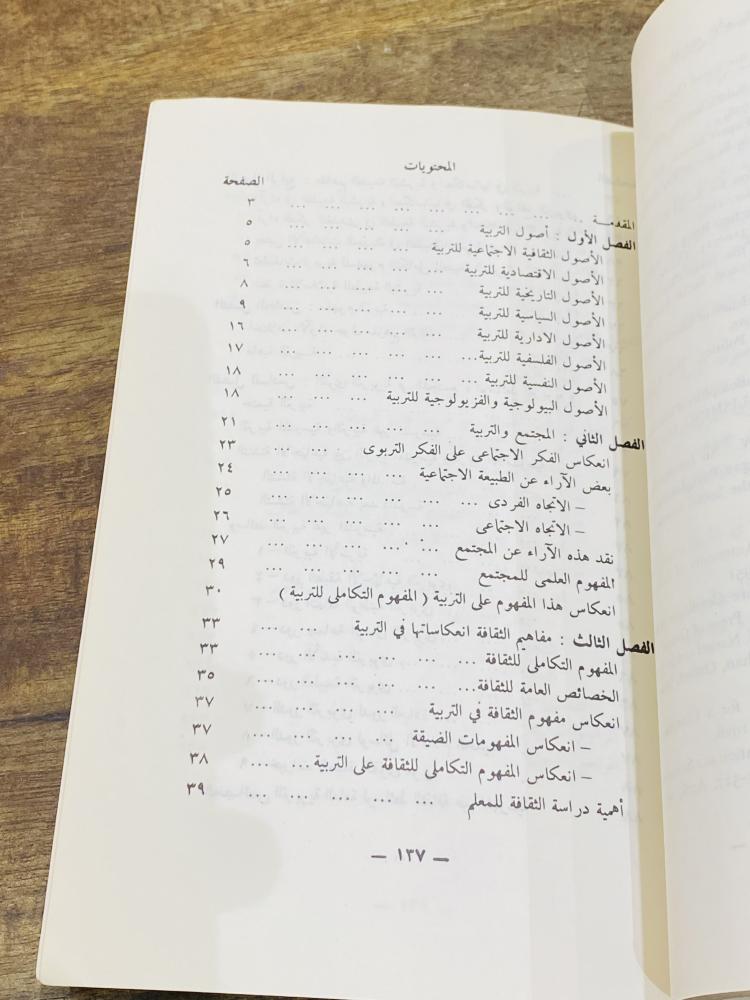 المحتويات
الصفحة
المقدمة ... ... ... ... ... ... ... ٣
الفصل الأول : أصول التربية ... ... ... ... ... ٥
الأصول الثقافية الاجتماعية للتربية ... ... ... ... ٥
الأصول الاقتصادية للتربية ... ... ... ... ٦
الأصول التاريخية للتربية ... ... ... ... ٨
الأصول السياسية للتربية ... ... ... ... ... ٩
الأصول الادارية للتربية ... ... ... ... ... ١٦
الأصول الفلسفية للتربية... ... ... ... ... ١٧
الأصول النفسية للتربية ... ... ... ... ... ١٨
الأصول البيولوجية والفزيولوجية للتربية ... ... ... ١٨
الفصل الثاني : المجتمع والتربية ... ... ... ... ... ٢١
انعكاس الفكر الاجتماعى على الفكر التربوى ... ... ... ٢٣
بعض الآراء عن الطبيعة الاجتماعية ... ... ... ... ٢٤
– الاتجاه الفردى ... ... ... ... ... ... ٢٥
– الاتجاه الاجتماعى ... ... ... ... ... ٢٦
نقد هذه الآراء عن المجتمع ... ... ... ... ... ٢٧
المفهوم العلمى للمجتمع ... ... ... ... ... ٢٩
انعكاس هذا المفهوم على التربية ( المفهوم التكاملى للتربية ) ٣٠
الفصل الثالث : مفاهيم الثقافة انعكاساتها في التربية ... ... ... ٣٣
المفهوم التكاملى للثقافة ... ... ... ... ... ... ٣٣
الخصائص العامة للثقافة... ... ... ... ... ... ٣٥
انعكاس مفهوم الثقافة في التربية ... ... ... ... ... ٣٧
– انعكاس المفهومات الضيقة ... ... ... ... ... ٣٧
– انعكاس المفهوم التكاملى للثقافة على التربية... ... ... ٣٨
أهمية دراسة الثقافة للمعلم ... ... ... ... ... ٣٩
– ١٣٧ –